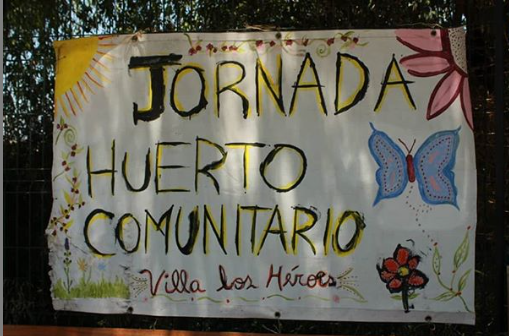 JORNADA
HUERTO
COMUNITARIO
Villa los Héroes